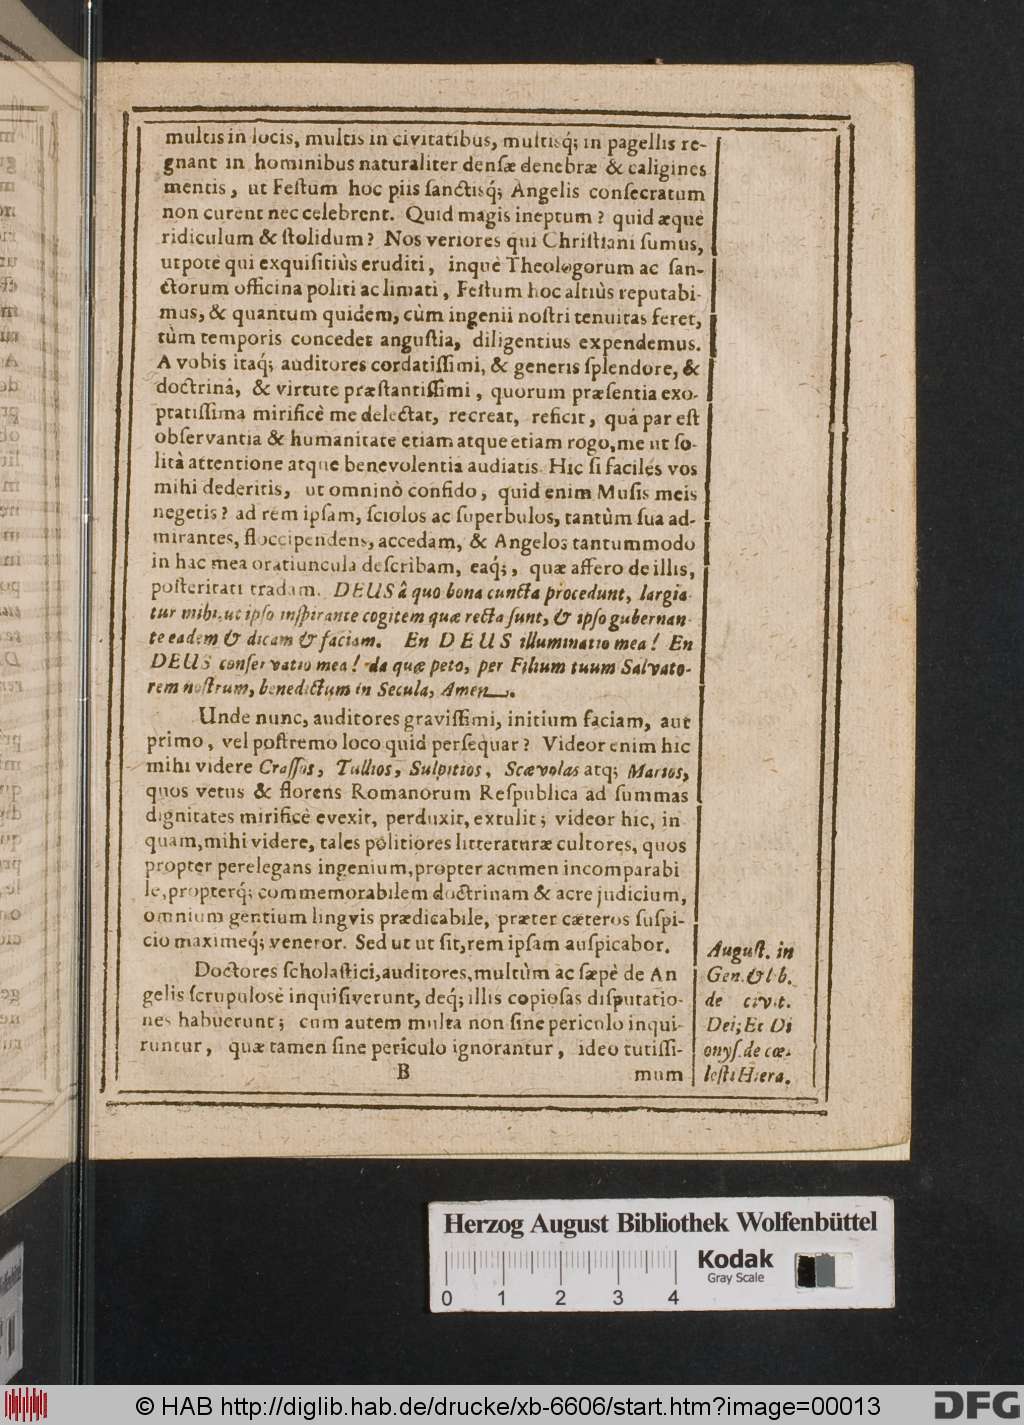 multis in locis, multis in civitatibus, multisq́; in pagellis re-
gnant in hominibus naturaliter densæ denebræ & caligines
mentis, ut Festum hoc piis sanctisq́; Angelis consecratum
non curent nec celebrent. Quid magis ineptum? quid æquè
ridiculum & stolidum? Nos veriores qui Christiani sumus,
utpote qui exquisitiùs eruditi, inquè Theologorum ac san-
ctorum officina politi ac limati, Festum hoc altiùs reputabi-
mus, & quantum quidem, cùm ingenii nostri tenuitas feret,
tùm temporis concedet angustia, diligentius expendemus.
A vobis itaq́; auditores cordatissimi, & generis splendore, &
doctrinâ, & virtute præstantissimi, quorum præsentia exo-
ptatissima mirificè me delectat, recreat, reficit, quá par est
observantia & humanitate etiam atque etiam rogo, me ut so-
lità attentione atque benevolentia audiatis. Hic si faciles vos
mihi dederitis, ut omninò confido, quid enim Musis meis
negetis? ad rem ipsam, sciolos ac superbulos, tantùm sua ad-
mirantes, floccipendens, accedam, & Angelos tantummodo
in hac mea oratiuncula describam, eaq́;, quæ affero de illis,
posteritati tradam. DEUS â quo bona cuncta procedunt, largia-
tur mihi, ut ipso inspirante cogitem quæ recta sunt, & ipso gubernan-
te eadem & dicam & faciam. En DEUS illuminatio mea! En
DEUS conservatio mea! da quæ peto, per Filium tuum Salvato-
rem nostrum, benedictum in Secula, Amen.
Unde nunc, auditores gravissimi, initium faciam, aut
primo, vel postremo loco quid persequar? Videor enim hic
mihi videre Crassos, Tullios, Sulpitios, Scævolas atq; Marios,
quos vetus & florens Romanorum Respublica ad summas
dignitates mirificè evexit, perduxit, extulit; videor hic, in
quam, mihi videre, tales politiores litteraturæ cultores, quos
propter perelegans ingenium, propter acumen incomparabi
le, propterq́; commemorabilem doctrinam & acre judicium,
omnium gentium lingvis prædicabile, præter cæteros suspi-
cio maximeq́; veneror. Sed ut ut sit, rem ipsam auspicabor.
Doctores scholastici, auditores, multùm ac sæpè de An
gelis scrupulosè inquisiverunt, deq́; illis copiosas disputatio-
nes habuerunt; cum autem multa non sine periculo inqui-
runtur, quæ tamen sine periculo ignorantur, ideo tutissi-
B mum
August. in
Gen. & lib.
de civit.
Dei; Et Di
onys. de cœ-
lesti Hiera.
Herzog August Bibliothek Wolfenbüttel
Kodak
Gray Scale
0 1 2 3 4
© HAB http://diglib.hab.de/drucke/xb-6606/start.htm?image=00013
DFG